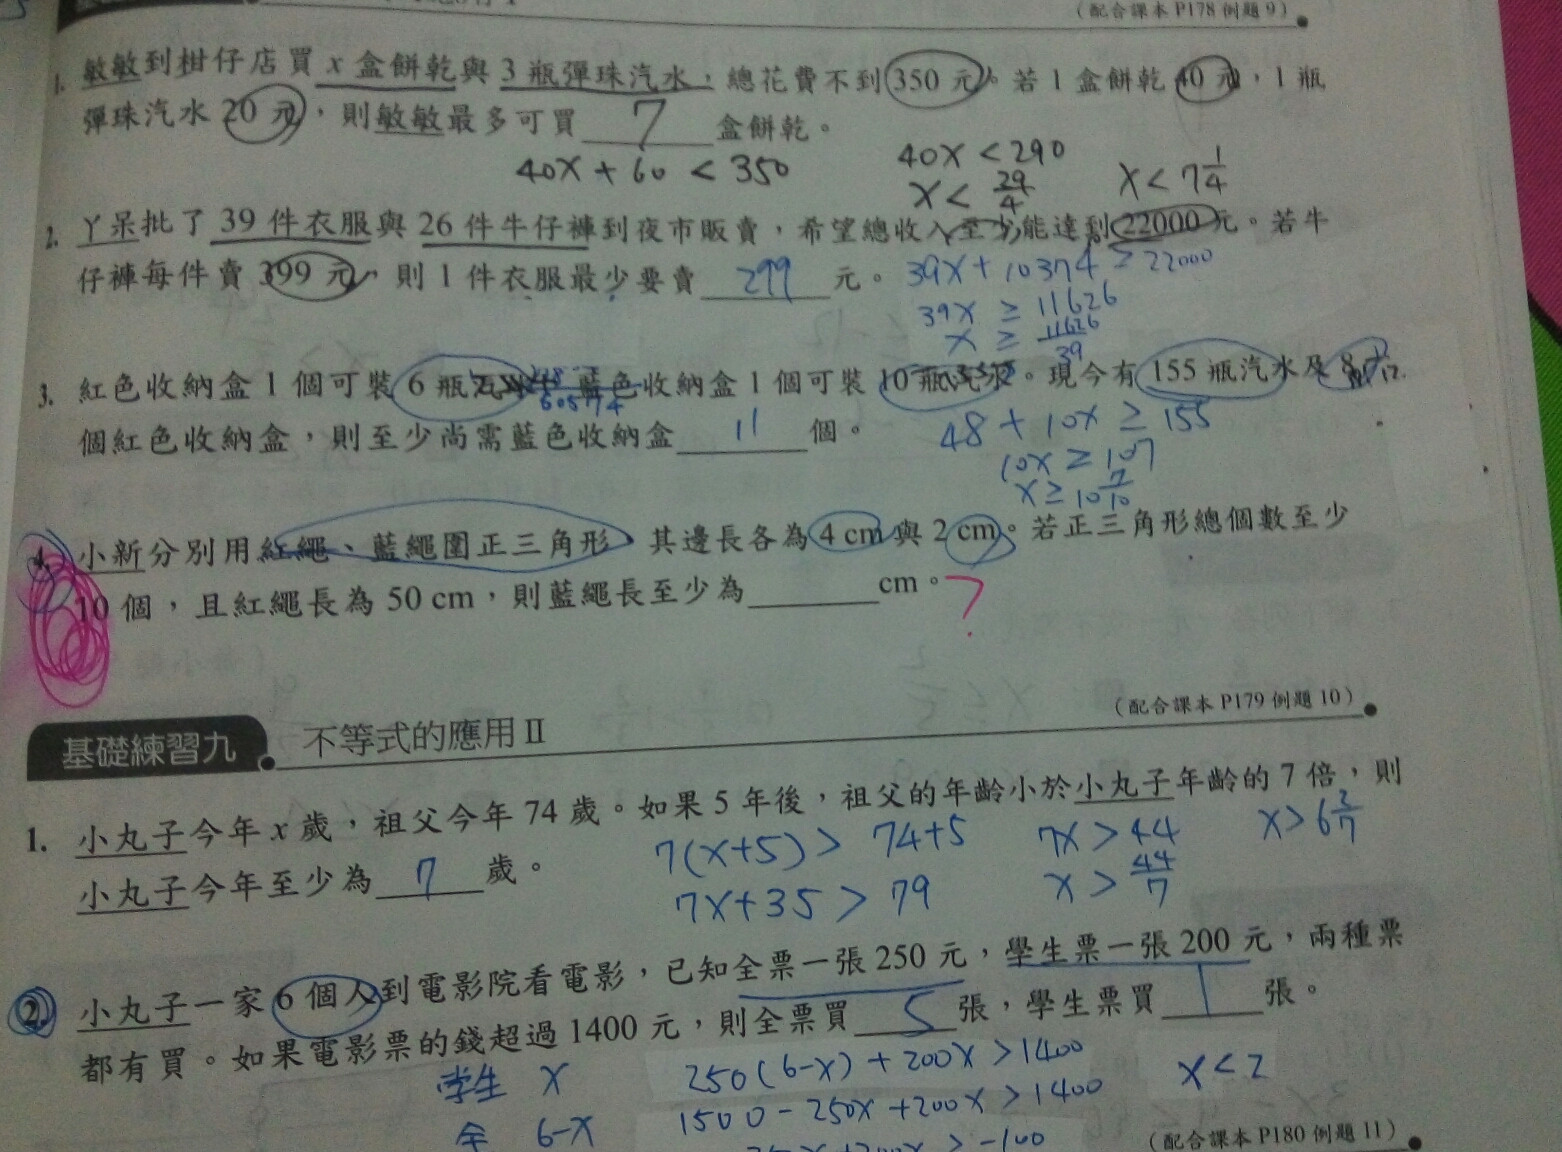 (配合課本 P178 例題 9)
1. 敏敏到柑仔店買 x 盒餅乾與 3 瓶彈珠汽水，總花費不到 350 元。若 1 盒餅乾 40 元，1 瓶
彈珠汽水 20 元，則敏敏最多可買 7 盒餅乾。
40x + 60 < 350
40x < 290
x < 29/4
x < 7 1/4
2. 丫呆批了 39 件衣服與 26 件牛仔褲到夜市販賣，希望總收入至少能達到 22000 元。若牛
仔褲每件賣 399 元，則 1 件衣服最少要賣 299 元。
39x + 10374 ≥ 22000
39x ≥ 11626
x ≥ 11626/39
3. 紅色收納盒 1 個可裝 6 瓶汽水，藍色收納盒 1 個可裝 10 瓶汽水。現今有 155 瓶汽水及 8
個紅色收納盒，則至少尚需藍色收納盒 11 個。
48 + 10x ≥ 155
10x ≥ 107
x ≥ 10 7/10
4. 小新分別用紅繩、藍繩圍正三角形，其邊長各為 4 cm 與 2 cm。若正三角形總個數至少
10 個，且紅繩長為 50 cm，則藍繩長至少為 cm。?
基礎練習九 不等式的應用 II
(配合課本 P179 例題 10)
1. 小丸子今年 x 歲，祖父今年 74 歲。如果 5 年後，祖父的年齡小於小丸子年齡的 7 倍，則
小丸子今年至少為 7 歲。
7(x+5) > 74+5
7x+35 > 79
7x > 44
x > 44/7
x > 6 2/7
2. 小丸子一家 6 個人到電影院看電影，已知全票一張 250 元，學生票一張 200 元，兩種票
都有買。如果電影票的錢超過 1400 元，則全票買 5 張，學生票買 1 張。
學生 x
全 6-x
250(6-x) + 200x > 1400
1500 - 250x + 200x > 1400
x < 2
(配合課本 P180 例題 11)